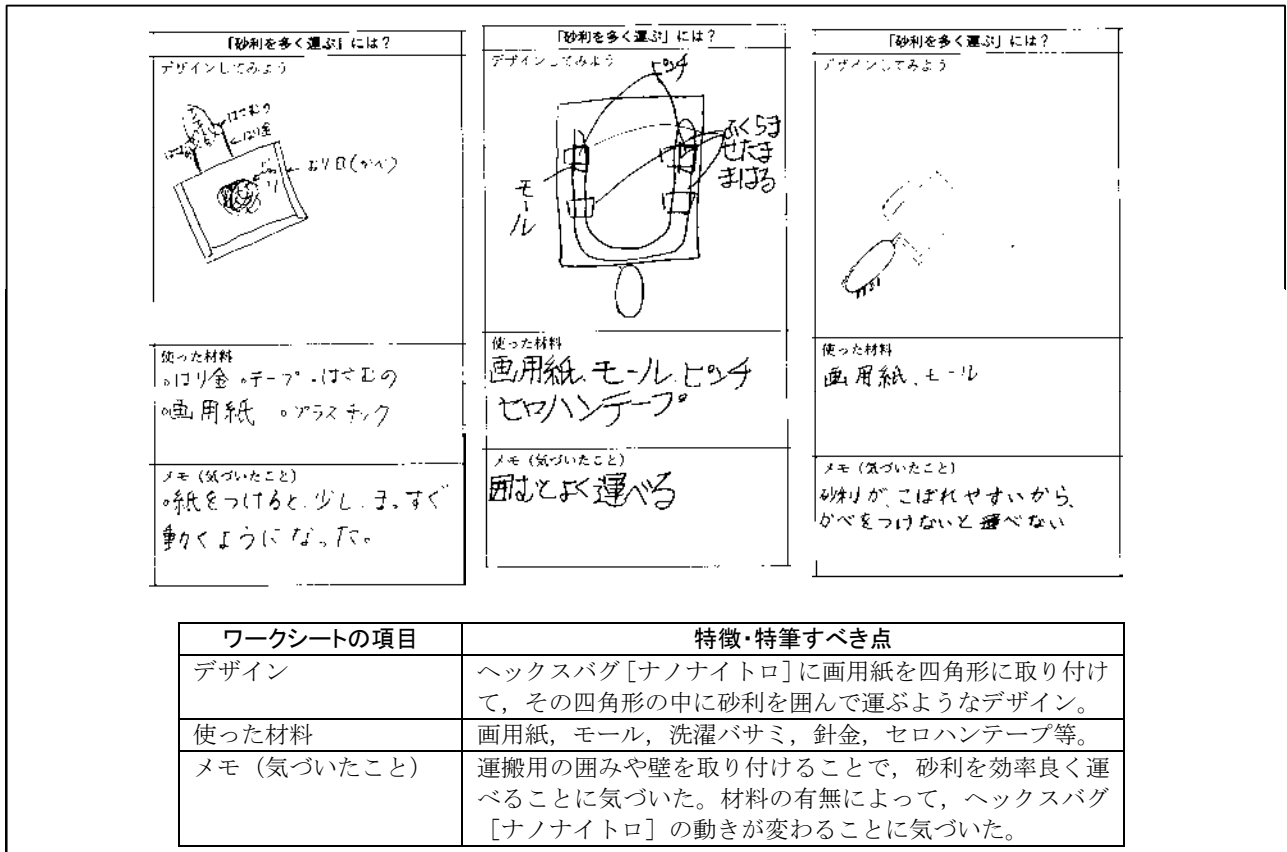 「砂利を多く運ぶ」には？
デザインしてみよう
はさむの
はり金
おり目(かべ)
使った材料
。はり金 。テープ 。はさむの
。画用紙 。プラスチック
メモ（気づいたこと）
。紙をつけると、少し、まっすぐ
動くようになった。
「砂利を多く運ぶ」には？
デザインしてみよう
ピンチ
モール
ふくらま
せたま
まはる
使った材料
画用紙、モール、ピンチ
セロハンテープ
メモ（気づいたこと）
囲むとよく運べる
「砂利を多く運ぶ」には？
デザインしてみよう
使った材料
画用紙、モール
メモ（気づいたこと）
砂利が、こぼれやすいから、
かべをつけないと運べない
ワークシートの項目
特徴・特筆すべき点
デザイン
ヘックスバグ［ナノナイトロ］に画用紙を四角形に取り付け
て，その四角形の中に砂利を囲んで運ぶようなデザイン。
使った材料
画用紙，モール，洗濯バサミ，針金，セロハンテープ等。
メモ（気づいたこと）
運搬用の囲みや壁を取り付けることで，砂利を効率良く運
べることに気づいた。材料の有無によって，ヘックスバグ
［ナノナイトロ］の動きが変わることに気づいた。